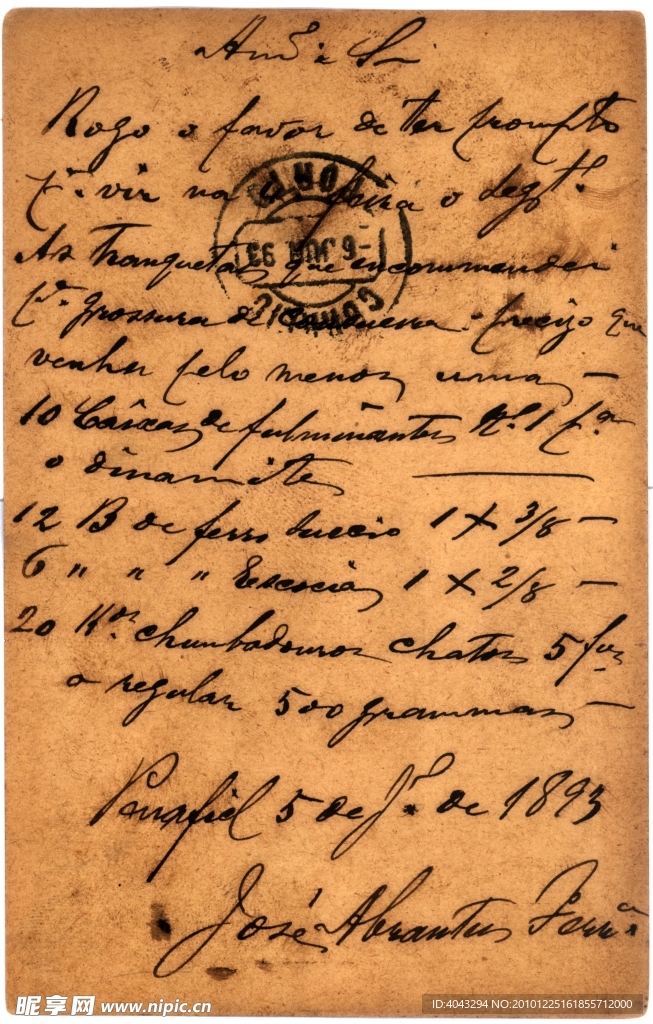 Am.º e Sr.
Rogo o favor de ter prompto
p.ª vir na feira o seg.te
As tranquetas que encommendei
p.ª grossura de preciso que
venha pelo menos uma
10 Caixas de fulminantes N.º 1 p.ª
o dinamite
12 B de ferro sueccio 1 X 3/8
6 " " " Escocia 1 X 2/8
20 K.os chumbadouros chatos 5
a regular 500 grammas
Penafiel 5 de J.º de 1893
José Abrantes Ferr.ª
PORTO
6 JUN 93
昵享网 www.nipic.cn
ID:4043294 NO:20101225161855712000